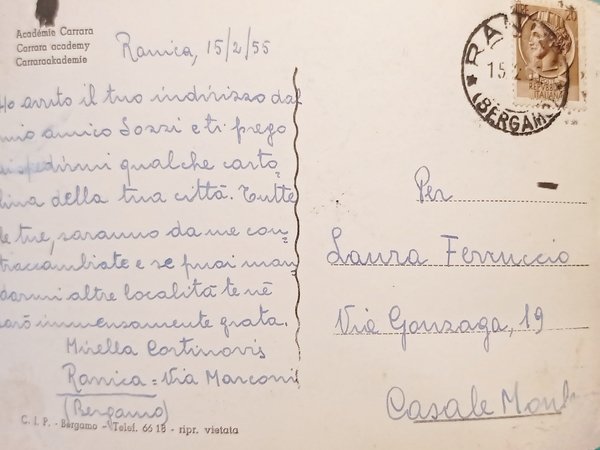 Académie Carrara
Carrara academy
Carraraakademie
Ranica, 15/2/55
Ho avuto il tuo indirizzo dal
mio amico Sozzi e ti prego
di spedirmi qualche carto
lina della tua città. Tutte
le tue, saranno da me con
traccambiate e se puoi man
darmi altre località te nè
sarò immensamente grata.
Mirella Cortinovis
Ranica = Via Marconi
(Bergamo)
C. I. P. - Bergamo - Telef. 66 18 - ripr. vietata
15.2
(BERGAMO)
Per
Laura Ferruccio
Via Gonzaga, 19
Casale Monf